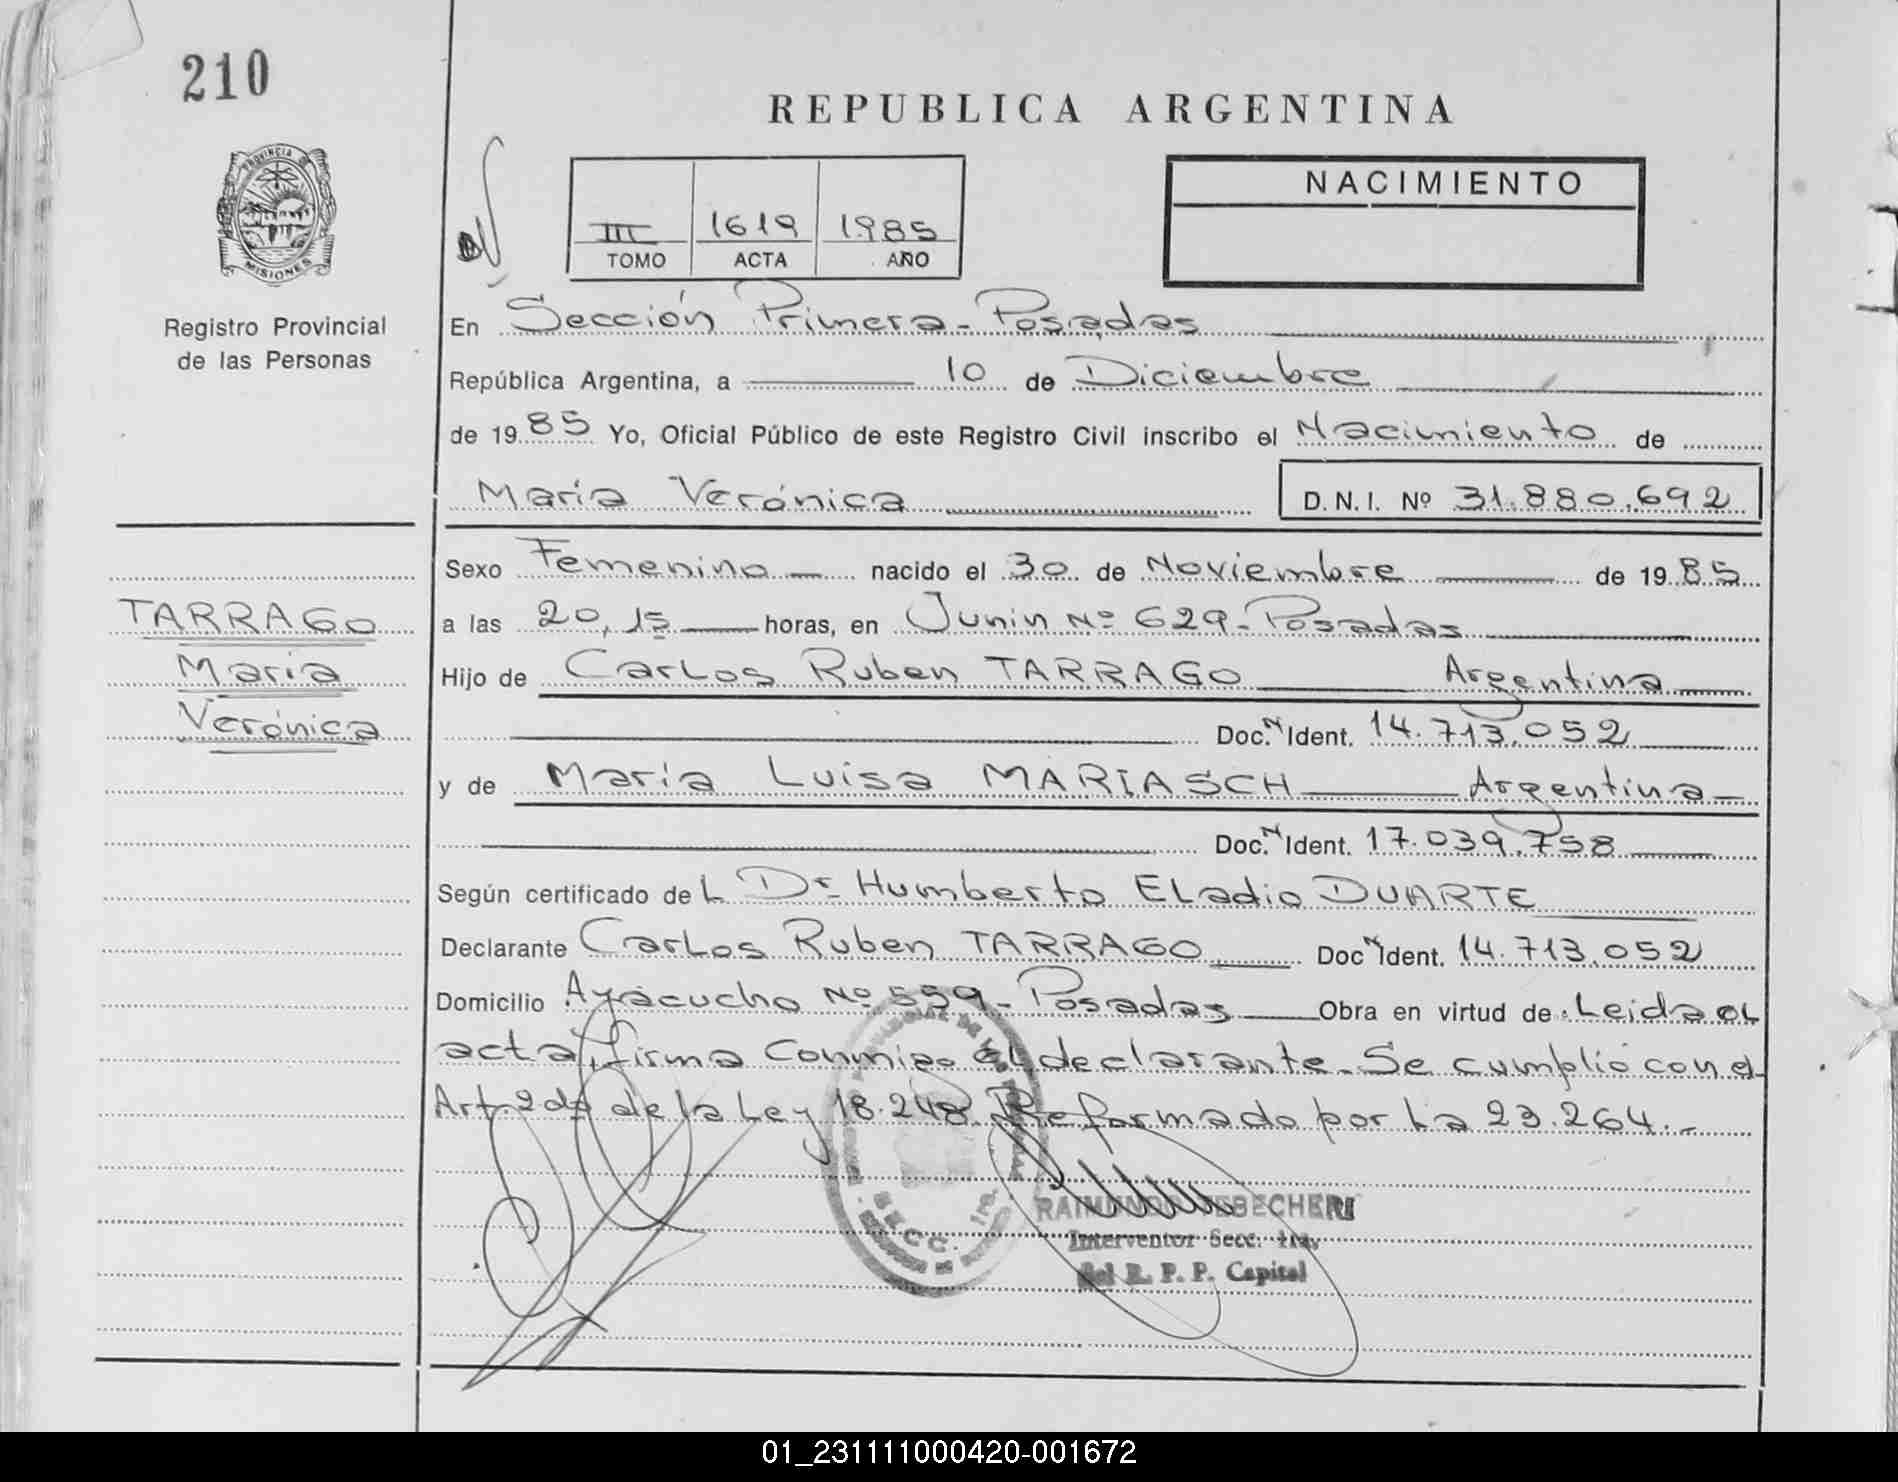 210
REPUBLICA ARGENTINA
PROVINCIA DE
MISIONES
Registro Provincial
de las Personas
III 1619 1985
TOMO ACTA AÑO
NACIMIENTO
En Sección Primera - Posadas
República Argentina, a 10 de Diciembre
de 1985 Yo, Oficial Público de este Registro Civil inscribo el Nacimiento de
María Verónica D.N.I. Nº 31.880.692
Sexo Femenino nacido el 30 de Noviembre de 1985
a las 20,15 horas, en Junin Nº 629 - Posadas
Hijo de Carlos Ruben TARRAGO Argentina
Doc. N Ident. 14.713.052
y de María Luisa MARIASCH Argentina
Doc. N Ident. 17.039.758
Según certificado del Dr. Humberto Eladio DUARTE
Declarante Carlos Ruben TARRAGO Doc N Ident. 14.713.052
Domicilio Ayacucho Nº 559 - Posadas Obra en virtud de: Leida el
acta, firma conmigo el declarante. Se cumplió con el
Art. 2do de la Ley 18.248 Reformado por la 23.264.-
TARRAGO
María
Verónica
SECC. 1ra.
RAIMUNDO
Interventor Secc. 1ra.
del R. P. P. Capital
01_231111000420-001672